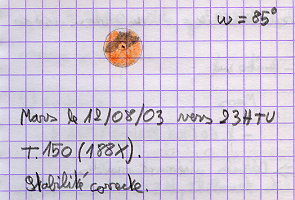 w = 85°
Mars le 12/08/03 vers 23HTU
T.150 (188X).
Stabilité correcte.